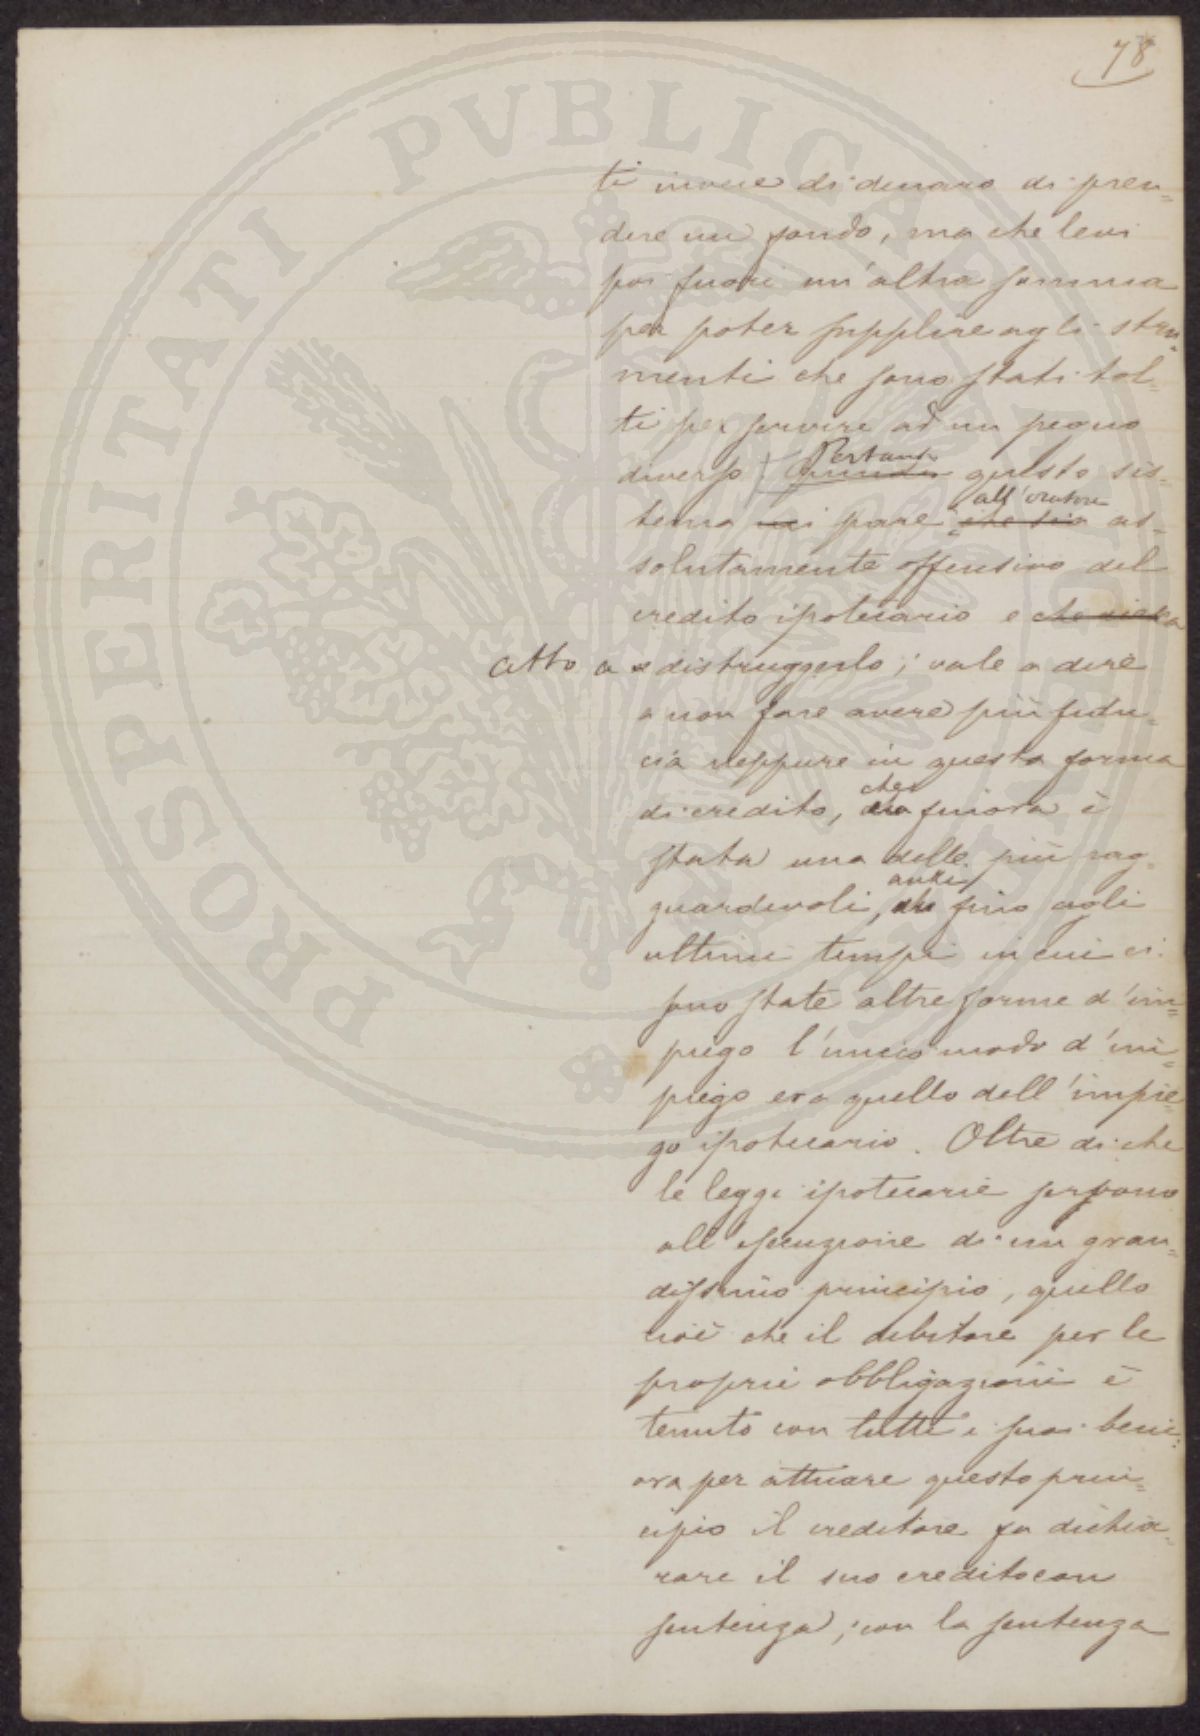 78
ti invece di denaro di pren=
dere un fondo, ma che levi
poi fuori un'altra somma
per poter supplire agli stru=
menti che sono stati tol=
ti per servire ad un pegno
diverso. Pertanto questo sis=
tema mi pare all'oratore che sia as=
solutamente offensivo del
credito ipotecario e che
atto a distruggerlo; vale a dire
a non fare avere più fidu=
cia neppure in questa forma
di credito, che finora è
stata una delle più rag=
guardevoli, anzi fino agli
ultimi tempi in cui ci
sono state altre forme d'im=
piego l'unico modo d'im=
piego era quello dell'impie=
go ipotecario. Oltre di che
le leggi ipotecarie servono
all'esecuzione di un gran=
dissimo principio, quello
cioè che il debitore per le
proprie obbligazioni è
tenuto con tutti i suoi beni:
ora per attuare questo prin=
cipio il creditore fa dichia=
rare il suo credito con
sentenza; con la sentenza
PROSPERITATI PVBLICAE